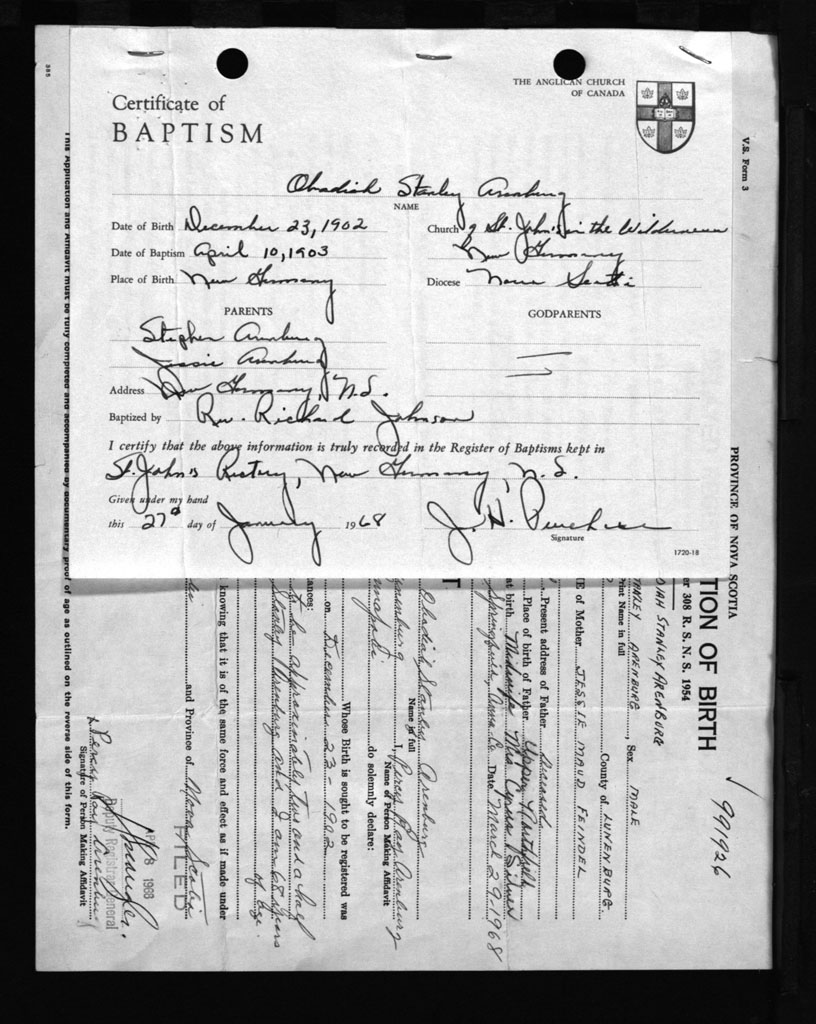 THE ANGLICAN CHURCH
OF CANADA
Certificate of
BAPTISM
Obadiah Stanley Arenburg
NAME
Date of Birth December 23, 1902
Church of St. John's in the Wilderness
New Germany
Date of Baptism April 10, 1903
Place of Birth New Germany
Diocese Nova Scotia
PARENTS
GODPARENTS
Stephen Arenburg
Jessie Arenburg
Address New Germany, N.S.
Baptized by Rev. Richard Johnson
I certify that the above information is truly recorded in the Register of Baptisms kept in
St. John's Rectory, New Germany, N.S.
Given under my hand
this 27th day of January 1968
J. H.
Signature
1720-18
585
V.S. Form 3
PROVINCE OF NOVA SCOTIA
TION OF BIRTH
991926
er 308 R. S. N. S. 1954
DIAH STANLEY ARENBURG
rint Name in full
TANLEY ARENBURG, Sex MALE
County of LUNENBURG
E of Mother JESSIE MAUD FEINDEL
Present address of Father Deceased
Place of birth of Father Upper
at birth Midwife Mrs
Date March 29-1968
T
Obadiah Stanley Arenburg
Name in full
I, Percy Roy Arenburg
Name of Person Making Affidavit
do solemnly declare:
Whose Birth is sought to be registered was
on December 23-1902
tances:
approximately two and a half
Stanley Arenburg and I am 68 years
of age.
knowing that it is of the same force and effect as if made under
and Province of Nova Scotia
FILED
APR 8 1968
Deputy Registrar General
Percy Roy Arenburg
Signature of Person Making Affidavit
This Application and Affidavit must be fully completed and accompanied by documentary proof of age as outlined on the reverse side of this form.